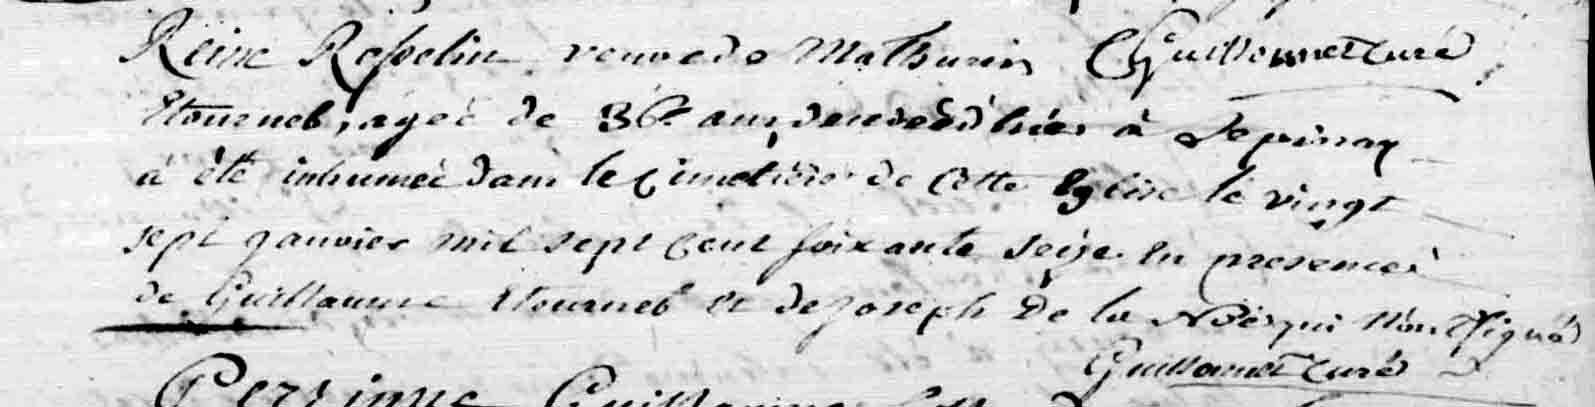 Reine Resselin veuve de Mathurin Guillemet curé
Etourneb, agée de 36 ans, decedée hier à Lepinnay
à été inhumée dans le cimetière de cette Eglise le vingt
sept janvier mil sept cent soixante seize en presences
de Guillaume Etourneb et de joseph De la Noë qui n'ont signés
Guillemet curé
Perrinne Guillaume